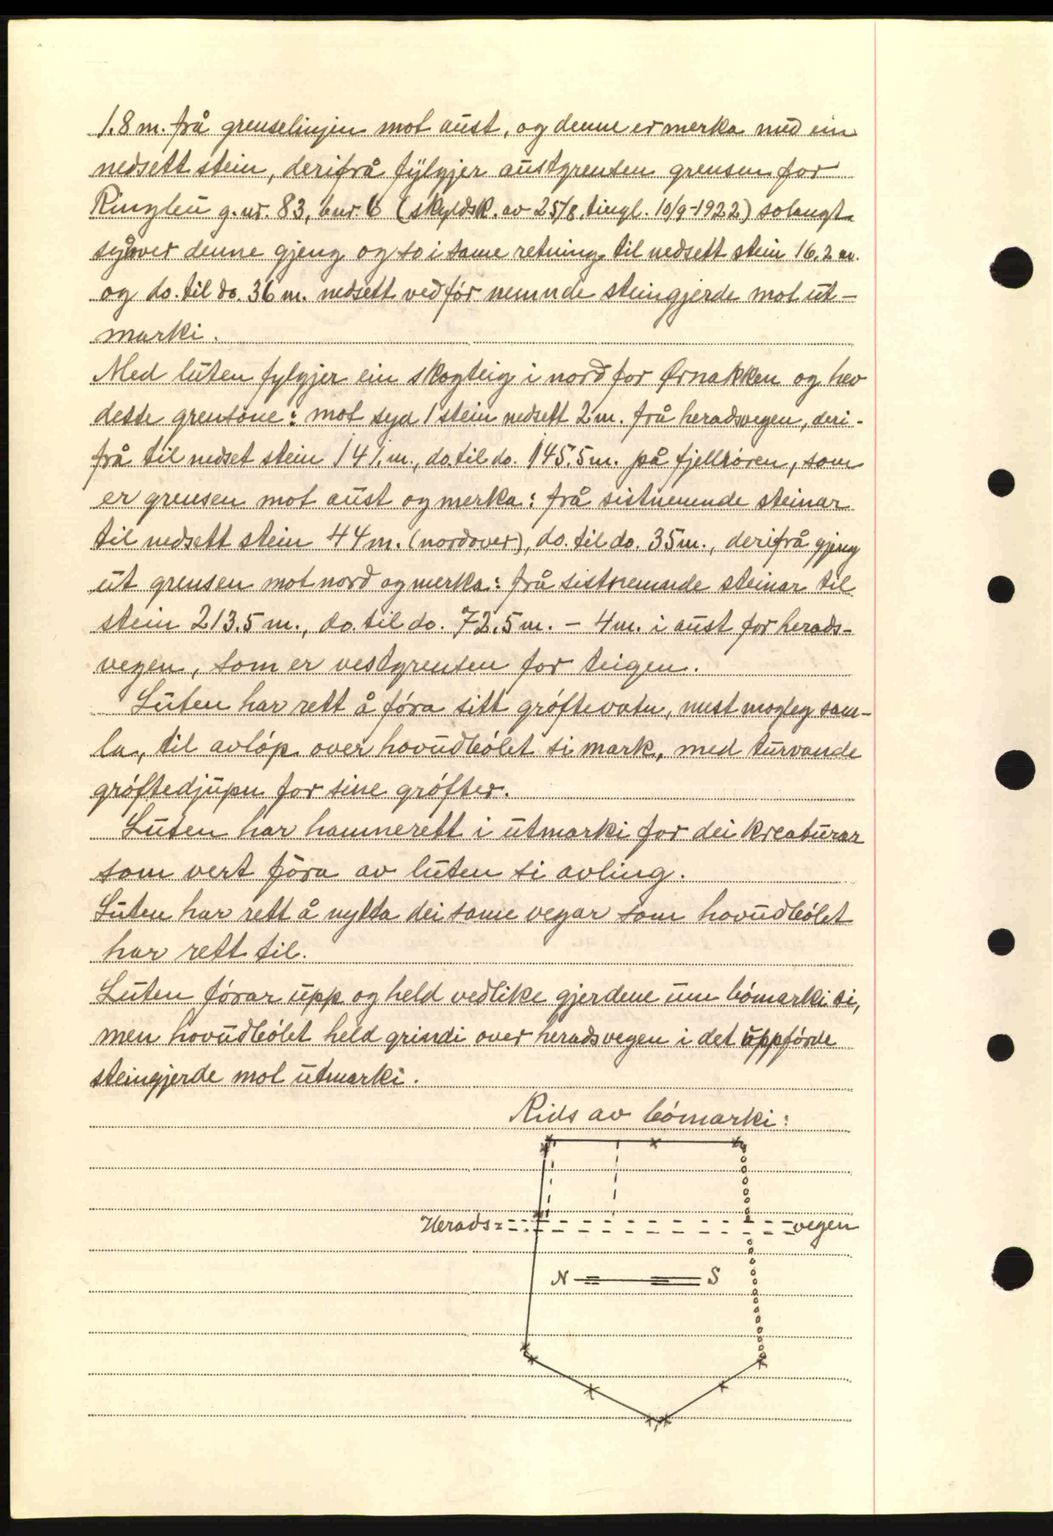 1.8 m. frå grenselinjin mot aust, og denne er merka med ein
nedsett stein, derifrå fylgjer austgrensen grensen for
Ringbu g.nr. 83, bnr. 6 (skyldsk. av 25/8, tingl. 10/9-1922) solangt
syover denne gjeng og so i same retning til nedsett stein 16.2 m.
og do. til do. 36 m. nedsett ved før nemnde steingjerde mot ut-
marki.
Med luten fylgjer ein skogteig i nord for Ørnakken og hev
desse grensone: mot syd 1 stein nedsett 2 m. frå heradsvegen, deri-
frå til nedset stein 141. m., do. til do. 145.5 m. på fjellróren, som
er grensen mot aust og merka: frå sistnemnde steinar
til nedsett stein 44 m. (nordover), do. til do. 35 m., derifrå gjeng
ut grensen mot nord og merka: frå sistnemnde steinar til
stein 213.5 m., do. til do. 72.5 m. - 4 m. i aust for herads-
vegen, som er vestgrensen for teigen.
Luten har rett å fóra sitt gróftevatn, mest mogleg sam-
la, til avlóp over hovudbólet si mark, med turvande
gróftedjupn for sine grófter.
Luten har hamnerett i utmarki for dei kreaturar
som vert fóra av luten si avling.
Luten har rett å nytta dei same vegar som hovudbólet
har rett til.
Luten fórar upp og held vedlike gjerdene um bómarki si,
men hovudbólet held grindi over heradsvegen i det uppfórde
steingjerde mot utmarki.
Riss av bómarki:
Herads= vegen
N S